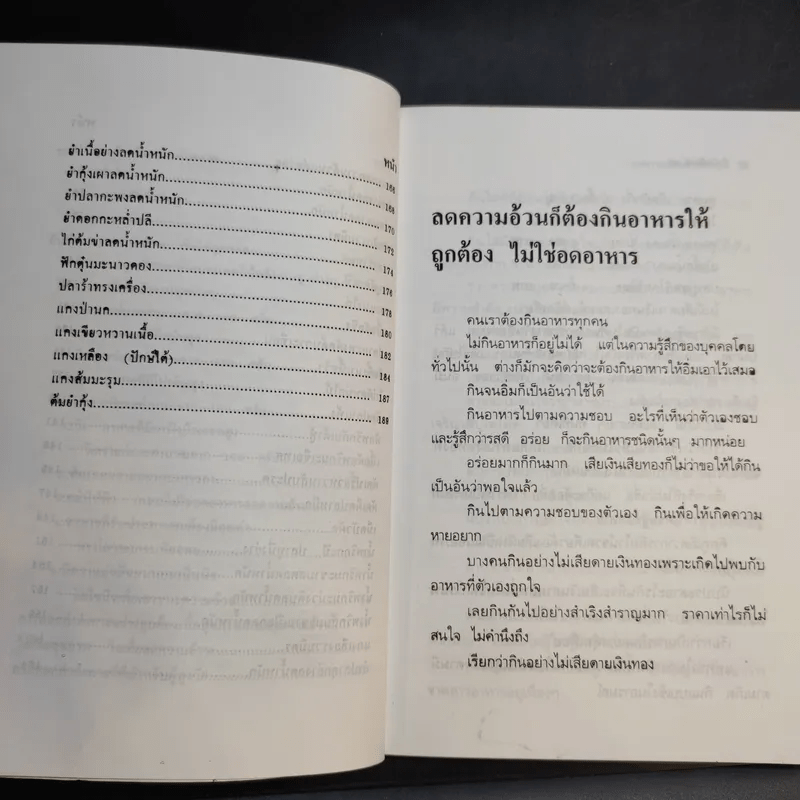 หน้า
ยำเนื้อย่างลดน้ำหนัก
ยำกุ้งเผาลดน้ำหนัก 166
ยำปลากะพงลดน้ำหนัก 168
ยำดอกกะหล่ำปลี 170
ไก่ต้มข่าลดน้ำหนัก 172
ฟักตุ๋นมะนาวดอง 174
ปลาร้าทรงเครื่อง 176
แกงป่านก 178
แกงเขียวหวานเนื้อ 180
แกงเหลือง (ปักษ์ใต้) 182
แกงส้มมะรุม 184
ต้มยำกุ้ง 187
189
ลดความอ้วนก็ต้องกินอาหารให้
ถูกต้อง ไม่ใช่อดอาหาร
คนเราต้องกินอาหารทุกคน
ไม่กินอาหารก็อยู่ไม่ได้ แต่ในความรู้สึกของบุคคลโดย
ทั่วไปนั้น ต่างก็มักจะคิดว่าจะต้องกินอาหารให้อิ่มเอาไว้เสมอ
กินจนอิ่มก็เป็นอันว่าใช้ได้
กินอาหารไปตามความชอบ อะไรที่เห็นว่าตัวเองชอบ
และรู้สึกว่ารสดี อร่อย ก็จะกินอาหารชนิดนั้นๆ มากหน่อย
อร่อยมากก็กินมาก เสียเงินเสียทองก็ไม่ว่าขอให้ได้กิน
เป็นอันว่าพอใจแล้ว
กินไปตามความชอบของตัวเอง กินเพื่อให้เกิดความ
หายอยาก
บางคนกินอย่างไม่เสียดายเงินทองเพราะเกิดไปพบกับ
อาหารที่ตัวเองถูกใจ
เลยกินกันไปอย่างสำเริงสำราญมาก ราคาเท่าไรก็ไม่
สนใจ ไม่คำนึงถึง
เรียกว่ากินอย่างไม่เสียดายเงินทอง